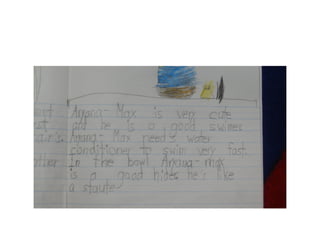 Ariana-Max is very cute
and he is a good swimer
Ariana-Max needs water
conditioner to swim very fast
In the bowl Ariana-max
is a good hider he's like
a staute